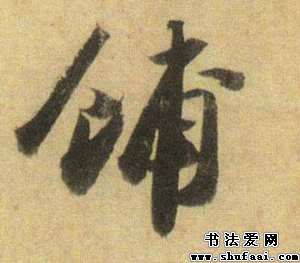 鋪
书法爱网
www.shufaai.com